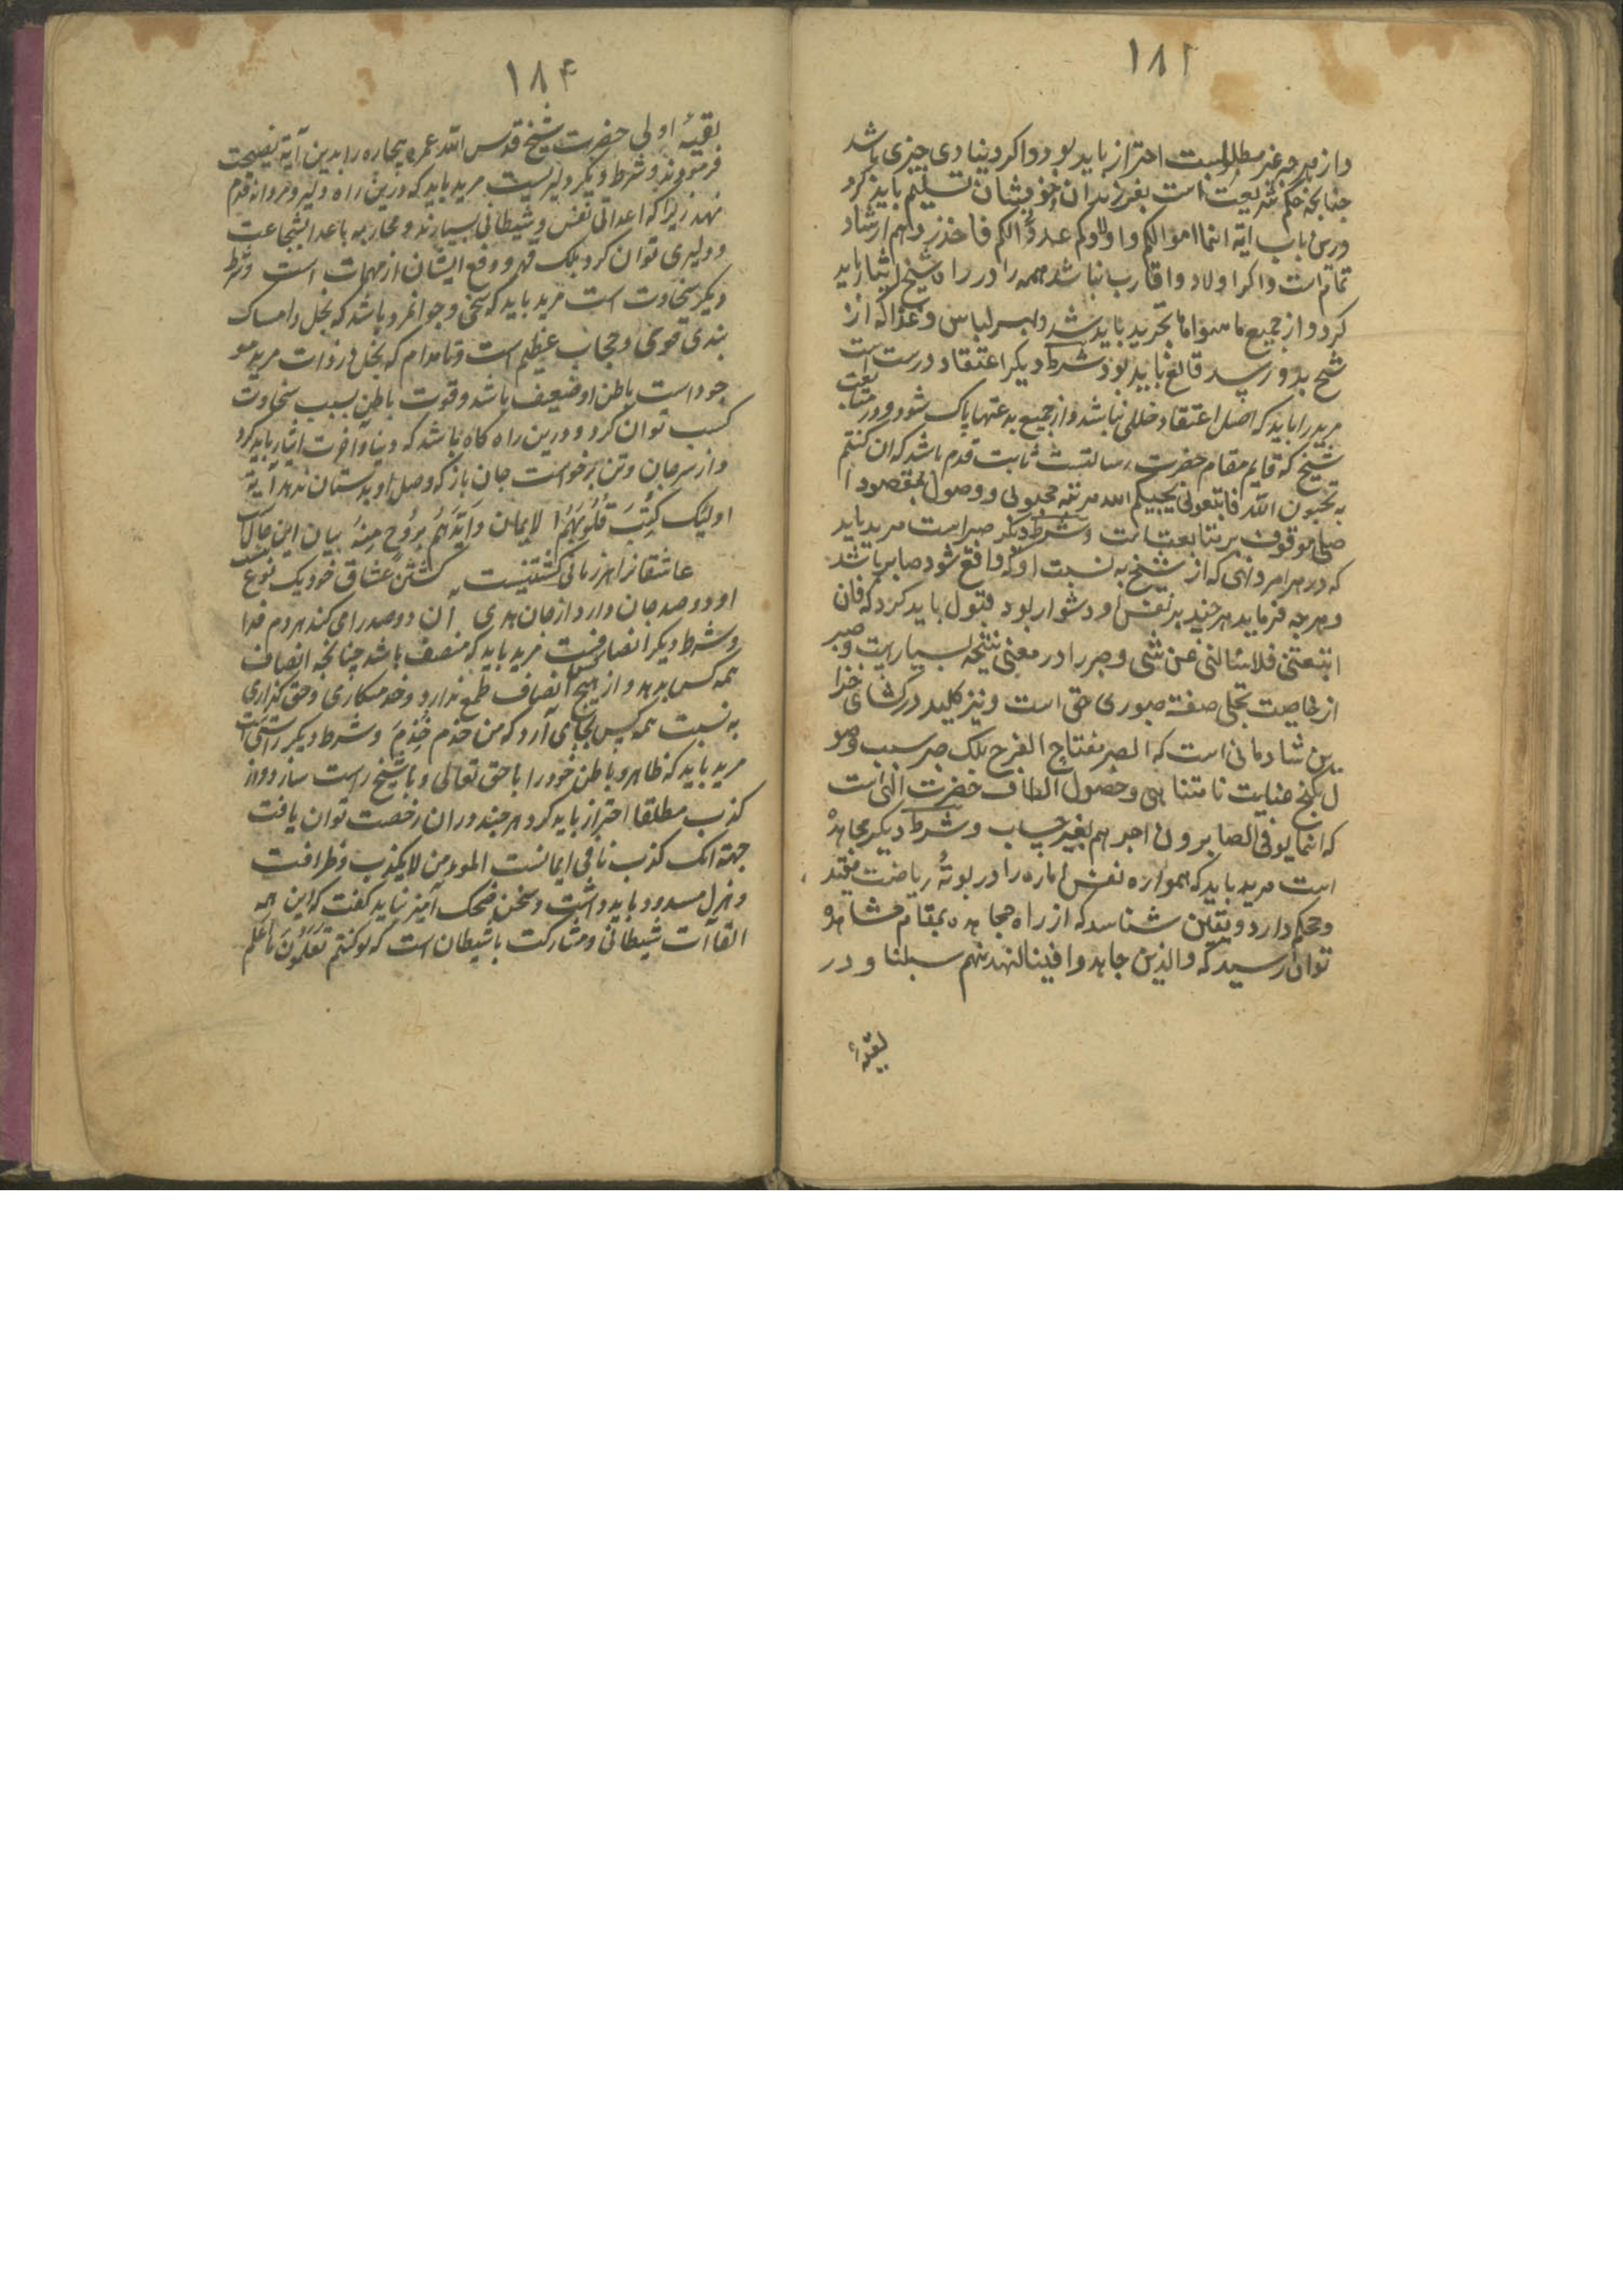 ۱۸۲
و از هر چه غیر مطلوبست احتراز باید بود و اگر دنیاوی چیزی باشد
چنانچه حکم شریعت است بفرزندان و خویشان تسلیم باید کرد
درین باب آیه انما اموالکم و اولادکم عدوًالکم فاحذر و اهم ارشاد
تمام است و اگر اولاد و اقارب نباشد همه را در راه شیخ ایثار باید
کرد و از جمیع ماسوا ما تجرید باید شد و بهر لباس و غذا که از
شیخ بدو رسد قانع باید بود شرط دیگر اعتقاد درست است
مرید را باید که اصل اعتقاد خللی نباشد و از جمیع بدعتها پاک شود و در متابعت
شیخ که قایم مقام حضرت رسالتست ثابت قدم باشد که ان کنتم
تحبون الله فاتبعونی یحببکم الله مرتبه محبوبی و وصول بمقصود ا
صلی موقوف بر متابعتست و شرط دیگر صبر است مرید باید
که در هر امر و نهی که از شیخ به نسبت او که واقع شود صابر باشد
و هر چه فرماید هر چند بر نفس او دشوار بود قبول باید کرد که فان
اتبعتنی فلا تسالنی عن شی و صبر را در معنی نتیجه بسیاریست و صبر
از خاصیت تجلی صفة صبوری حق است و نیز کلید در کشای خزا
ین شادمانی است که الصبر مفتاح الفرج بلک صبر سبب وصو
ل گنج عنایت نامتناهی و حصول الطاف حضرت الهی است
که انما یوفی الصابرون اجرهم بغیر حساب و شرط دیگر مجاهدهٔ
است مرید باید که همواره نفس اماره را در بوتهٔ ریاضت مقید
و محکم دارد و یقین شناسد که از راه مجاهده بمقام مشاهده
توان رسید که و الذین جاهدوا فینا لنهدینهم سبلنا و در
بقیهٔ
۱۸۴
بقیهٔ اولی حضرت شیخ قدس الله عمره بیچاره را بدین آیة نصیحت
فرمودند و شرط دیگر دلیریست مرید باید که درین راه دلیر و مردانه قدم
نهد زیرا که اعدائی نفس و شیطانی بسیارند و محاربه با اعدا بشجاعت
و دلیری توان کرد بلک قهر و دفع ایشان از مهمات است و شرط
دیگر سخاوت است مرید باید که سخی و جوانمرد باشد که بخل و امساک
بندی قوی و حجاب عظیم است و تا مدام که بخل در ذات مرید مو
جود است باطن او ضعیف باشد و قوت باطن بسبب سخاوت
کسب توان کرد و درین راه گاه باشد که دنیا و آخرت ایثار باید کرد
و از سر جان و تن برخواست جان باز که وصل او بدستان ندهد آیة
اولیک کتب قلوبهم الایمان و ایدهم بروح منه بیان این حالات
عاشقانرا هر زمانی کشتنیست کشتن عشاق خود یک نوع نیست
او دو صد جان دارد از جان هدی آن دو صد را می کند هر دم فدا
و شرط دیگر انصافست مرید باید که منصف باشد چنانچه انصاف
همه کس بدهد و از هیچ کس انصاف طمع ندارد و خدمتکاری و حق گزاری
به نسبت همه کس بجای آرد که من خدم خُدِمَ و شرط دیگر راستی است
مرید باید که ظاهر و باطن خود را با حق تعالی و با شیخ راست سازد و از
کذب مطلقا احتراز باید کرد هر چند در ان رخصت توان یافت
جهته انک کذب نافی ایمانست المومن لا یکذب و ظرافت
و هزل مسدود باید داشت و سخن ضحک آمیز نباید گفت که این همه
القاآت شیطانی و مشارکت با شیطان است که لو کنتم تعلمون ما اعلم